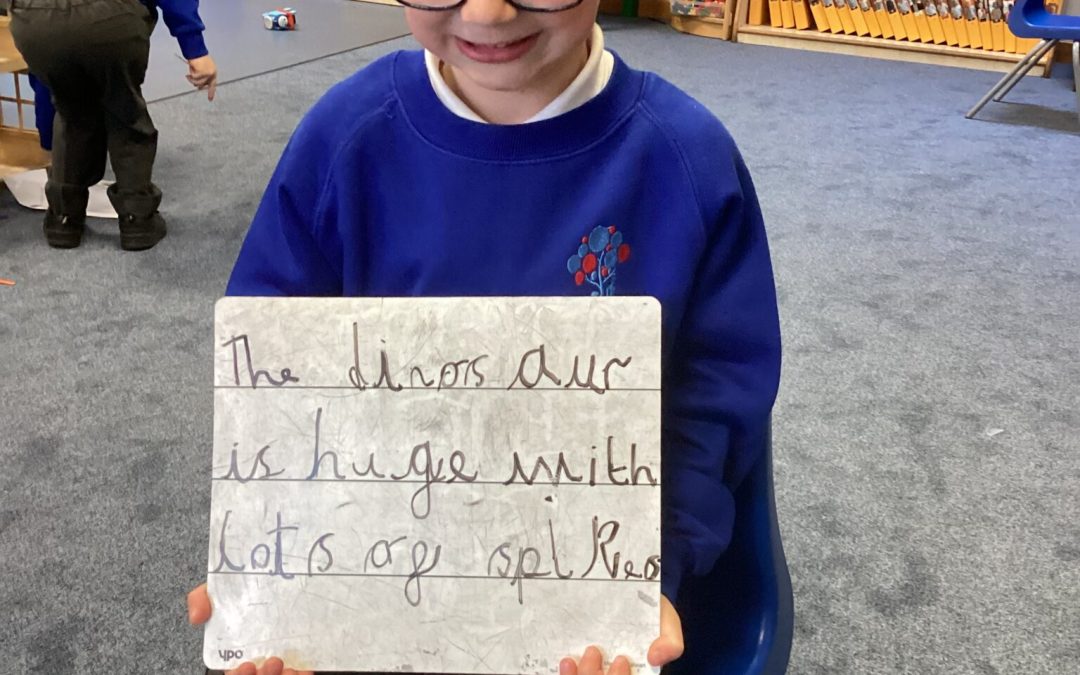 The dinosaur
is huge with
lots of spikes
ypo